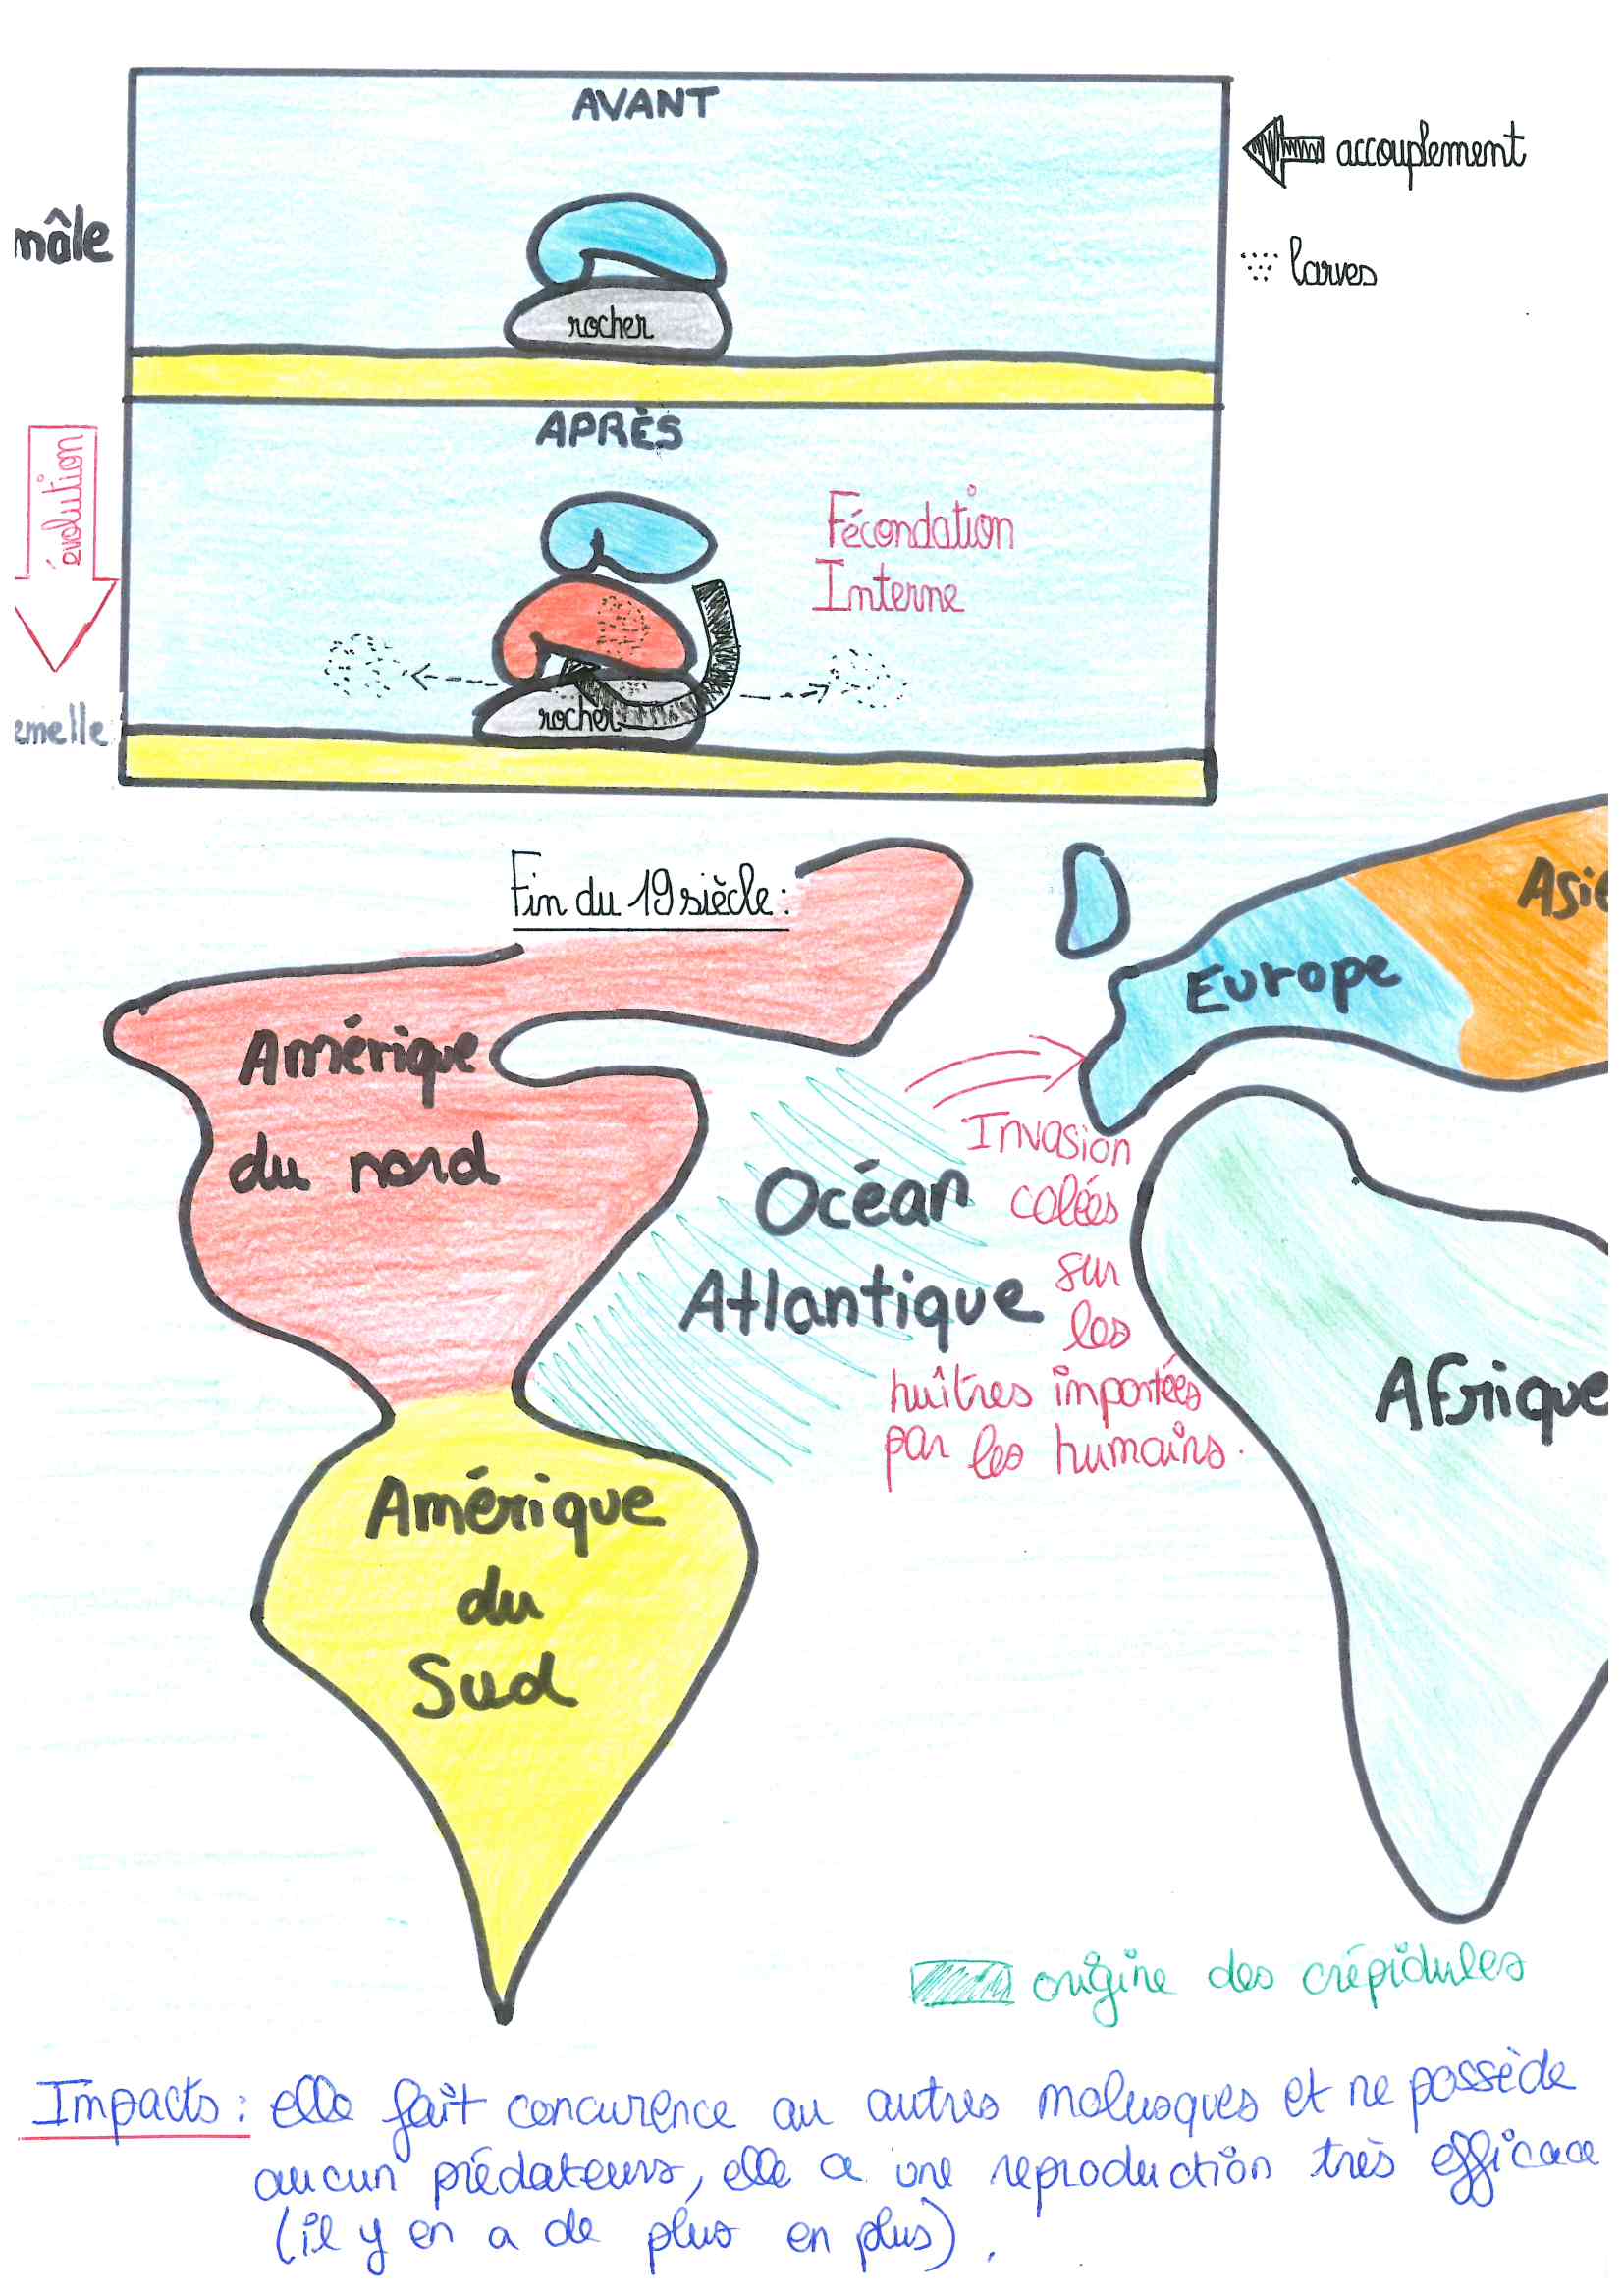 AVANT
accouplement
mâle
larves
rocher
APRÈS
évolution
Fécondation
Interne
rocher
emelle
Fin du 19 siècle :
Asie
Europe
Amérique
du nord
Invasion
Océan
colées
Atlantique
sur
les
huîtres importées
par les humains.
Afrique
Amérique
du
Sud
origine des crépidules
Impacts : elle fait concurence au autres molusques et ne possède
aucun prédateurs, elle a une reproduction très efficace
(il y en a de plus en plus).